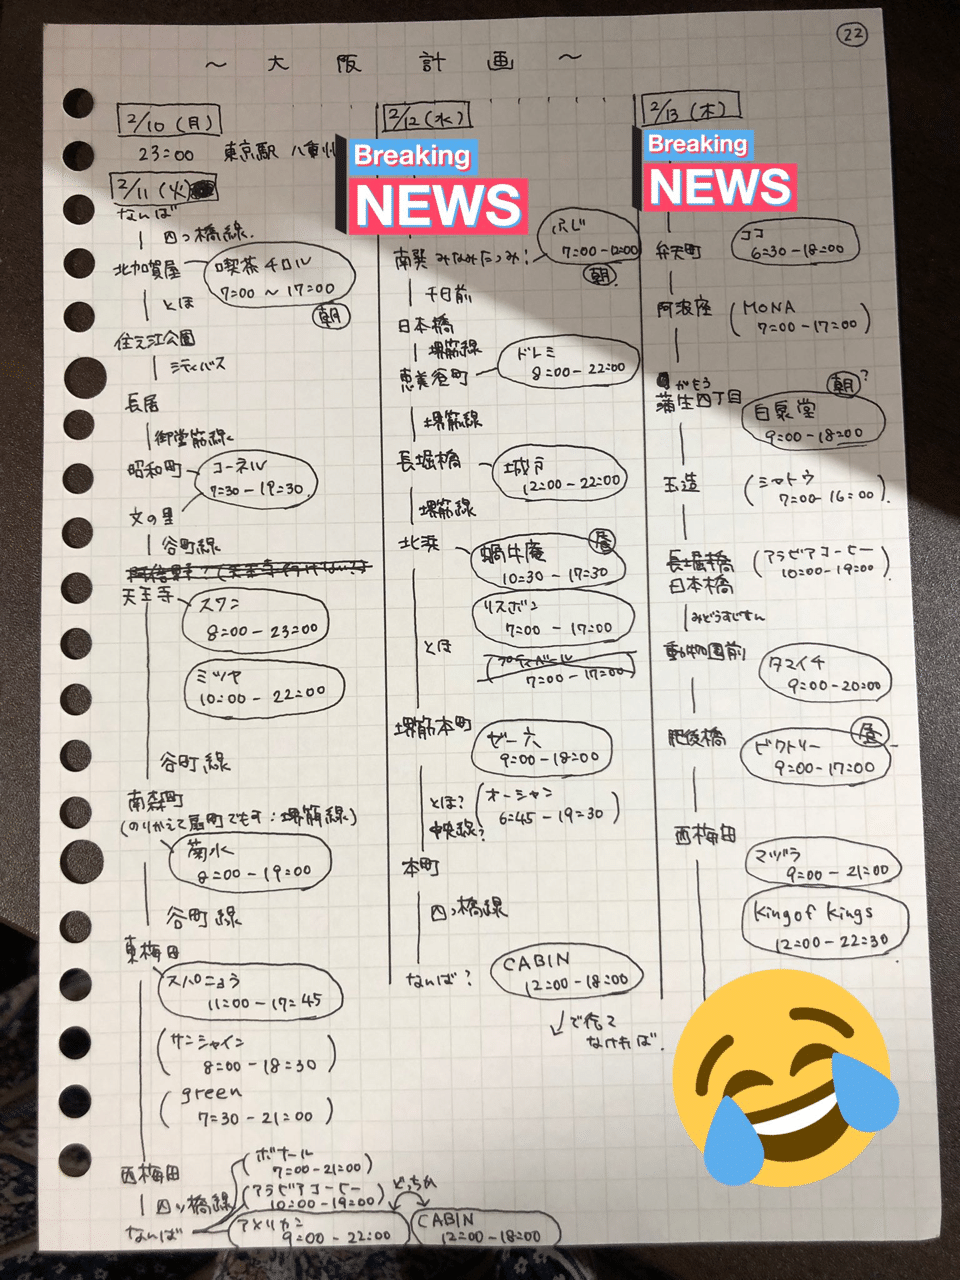 22
～ 大 阪 計 画 ～
2/10 (月)
23:00 東京駅 八重洲
2/11 (火)
なんば
四つ橋線
北加賀屋
喫茶 チロル
7:00 ～ 17:00
朝
とほ
住之江公園
シティバス
長居
御堂筋線
昭和町
コーネル
7:30 - 19:30
文の里
谷町線
天王寺
スワン
8:00 - 23:00
ミツヤ
10:00 - 22:00
谷町線
南森町
(のりかえて扇町でもす:堺筋線)
菊水
8:00 - 19:00
谷町線
東梅田
スパニョう
11:00 - 17:45
(サンシャイン
8:00 - 18:30)
(green
7:30 - 21:00)
西梅田
(ボナール
7:00 - 21:00)
四ツ橋線
(アラビアコーヒー
10:00 - 19:00)
どっちか
なんば
アメリカン
9:00 - 22:00
CABIN
12:00 - 18:00
2/12 (水)
Breaking
NEWS
南巽 みなみたつみ!
ふじ
7:00 - 12:00
朝
千日前
日本橋
堺筋線
恵美谷町
ドレミ
8:00 - 22:00
堺筋線
長堀橋
城戸
12:00 - 22:00
堺筋線
北浜
蝸牛庵
10:30 - 17:30
昼
リスボン
7:00 - 17:00
とほ
プティボール
7:00 - 17:00
堺筋本町
ゼー六
9:00 - 18:00
とほ?
中央線?
(オーシャン
6:45 - 19:30)
本町
四つ橋線
なんば?
CABIN
12:00 - 18:00
で行って
なければ.
2/13 (木)
Breaking
NEWS
弁天町
ココ
6:30 - 18:00
阿波座
(MONA
7:00 - 17:00)
がもう
蒲生四丁目
朝?
白泉堂
9:00 - 18:00
玉造
(シャトウ
7:00 - 16:00)
長堀橋
日本橋
(アラビアコーヒー
10:00 - 19:00)
みどうすじせん
動物園前
タマイチ
9:00 - 20:00
肥後橋
ビクトリー
9:00 - 17:00
昼
西梅田
マヅラ
9:00 - 21:00
King of Kings
12:00 - 22:30